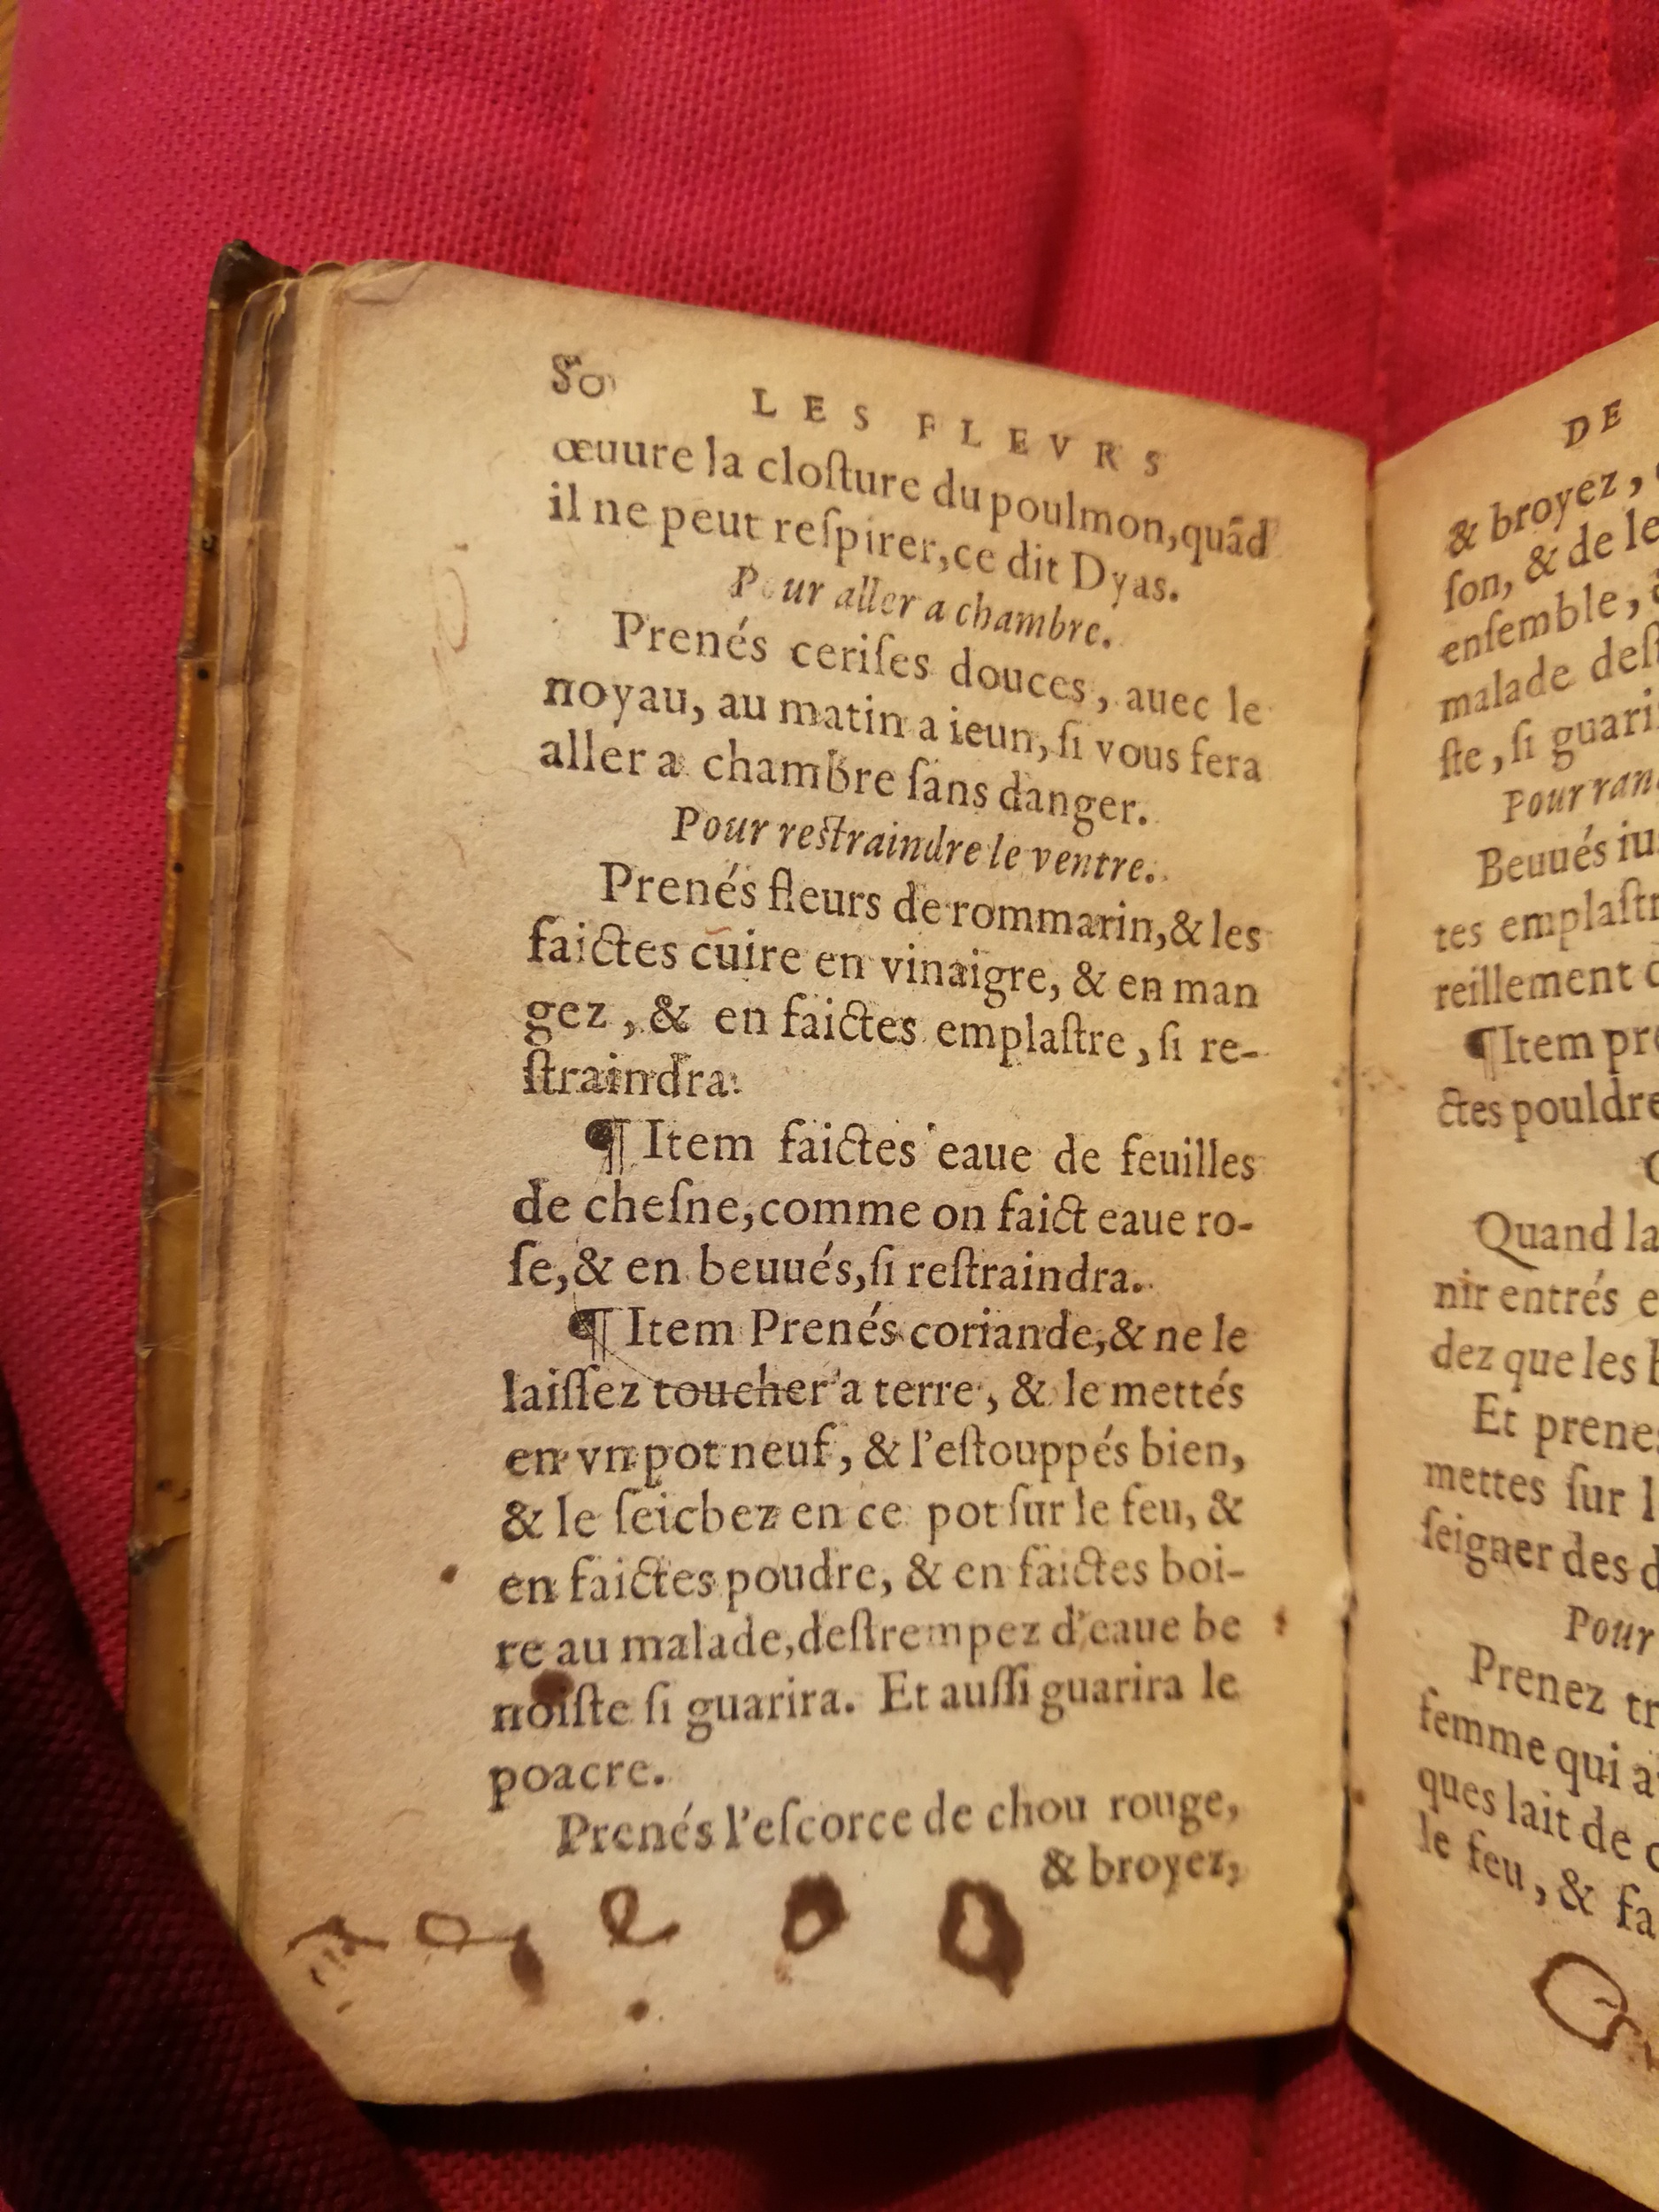 80
LES FLEVRS
œuure la cloſture du poulmon, quãd
il ne peut reſpirer, ce dit Dyas.
Pour aller a chambre.
Prenés ceriſes douces, auec le
noyau, au matin a ieun, ſi vous fera
aller a chambre ſans danger.
Pour reſtraindre le ventre.
Prenés fleurs de rommarin, & les
faictes cuire en vinaigre, & en man
gez, & en faictes emplaſtre, ſi re-
ſtraindra.
¶ Item faictes eaue de feuilles
de cheſne, comme on faict eaue ro-
ſe, & en beuués, ſi reſtraindra.
¶ Item Prenés coriande, & ne le
laiſſez toucher a terre, & le mettés
en vn pot neuf, & l'eſtouppés bien,
& le ſeicbez en ce pot ſur le feu, &
en faictes poudre, & en faictes boi-
re au malade, deſtrempez d'eaue be
noiſte ſi guarira. Et auſſi guarira le
poacre.
Prenés l'eſcorce de chou rouge,
& broyez,
DE
& broyez,
ſon, & de le
enſemble,
malade deſt
ſte, ſi guari
Pour ran
Beuués ius
tes emplaſtr
reillement
¶ Item pre
ctes pouldre
Quand la
nir entrés e
dez que les
Et prenes
mettes ſur l
ſeigner des d
Pour
Prenez tr
femme qui a
ques lait de c
le feu, & fa